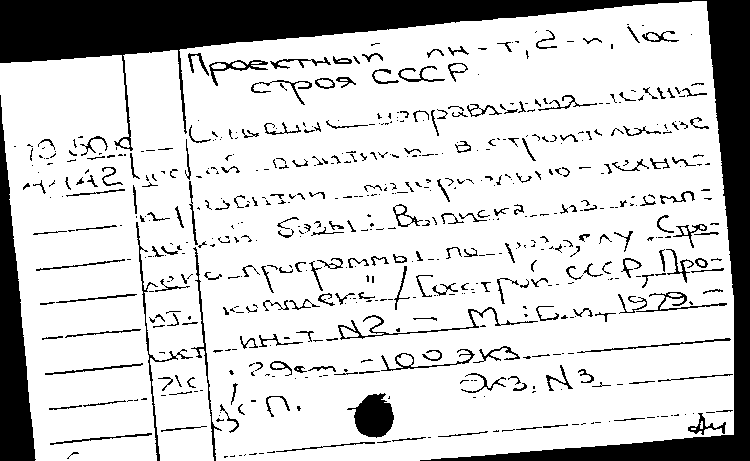 Проектный ин-т, 2-й, Гос
строя СССР.
Основные направления техни-
ческой политики в строительстве
и развитии материально-техни-
ческой базы: Выписка из комп-
программы по разделу "Строи-
комплекс" / Госстрой СССР, Про-
ин-т N2. - М.: Б.и., 1979. -
29 ст. - 100 экз.
ДСП. Экз. N3.